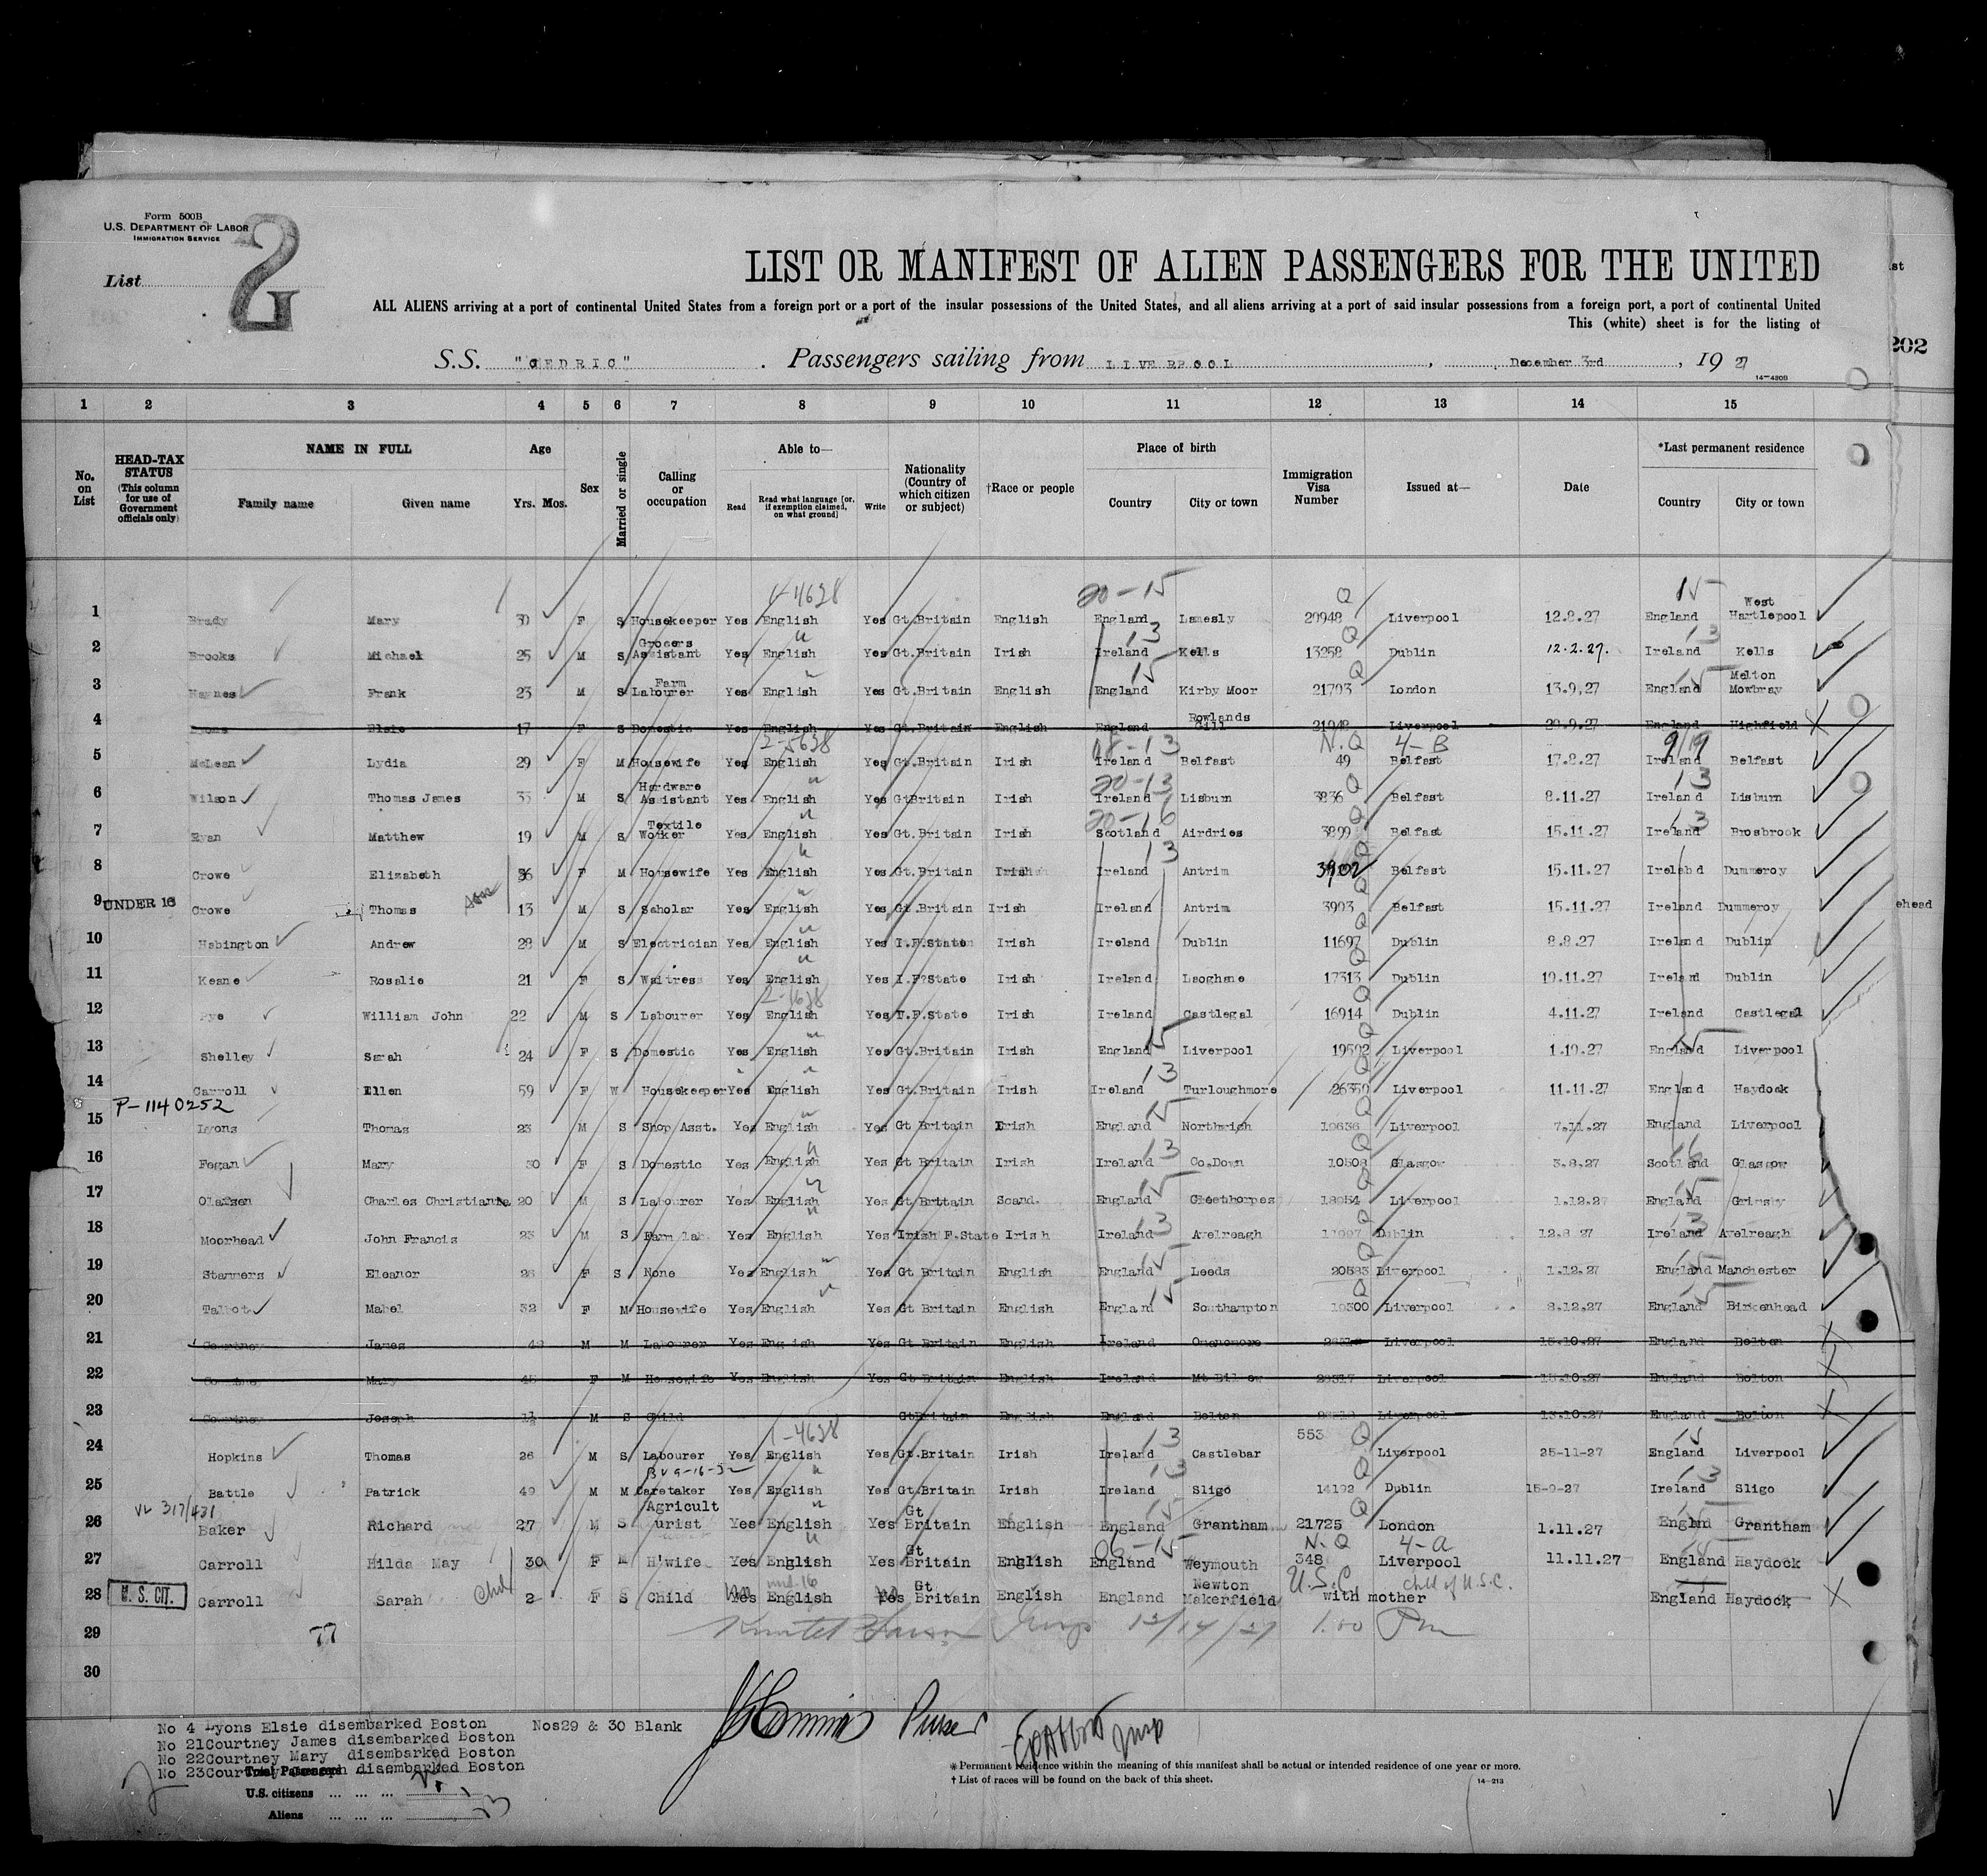 Form 500B
U.S. DEPARTMENT OF LABOR
IMMIGRATION SERVICE
List
2
LIST OR MANIFEST OF ALIEN PASSENGERS FOR THE UNITED
ALL ALIENS arriving at a port of continental United States from a foreign port or a port of the insular possessions of the United States, and all aliens arriving at a port of said insular possessions from a foreign port, a port of continental United
This (white) sheet is for the listing of
S.S. "CEDRIC" . Passengers sailing from LIVERPOOL , December 3rd , 19 27
202
14-430B
1 2 3 4 5 6 7 8 9 10 11 12 13 14 15
No. on List
HEAD-TAX STATUS (This column for use of Government officials only)
NAME IN FULL Family name Given name
Age Yrs. Mos.
Sex
Married or single
Calling or occupation
Able to— Read Read what language [or, if exemption claimed, on what ground] Write
Nationality (Country of which citizen or subject)
†Race or people
Place of birth Country City or town
Immigration Visa Number
Issued at—
Date
*Last permanent residence Country City or town
1 Brady Mary 30 F S Housekeeper Yes English Yes Gt.Britain English England Lamesly 20948 Q Liverpool 12.8.27 England West Hartlepool
2 Brooks Michael 25 M S Grocers Assistant Yes English Yes Gt.Britain Irish Ireland Kells 13258 Q Dublin 12.2.27. Ireland Kells
3 Haynes Frank 23 M S Farm Labourer Yes English Yes Gt.Britain English England Kirby Moor 21793 Q London 13.9.27 England Melton Mowbray
4 Lyons Elsie 17 F S Domestic Yes English Yes Gt.Britain English England Rowlands Gill 21948 Liverpool 20.9.27 England Highfield
5 McLean Lydia 29 F M Housewife Yes English Yes Gt.Britain Irish Ireland Belfast 49 N.Q 4-B Belfast 17.8.27 Ireland Belfast
6 Wilson Thomas James 35 M S Hardware Assistant Yes English Yes GtBritain Irish Ireland Lisburn 3836 Q Belfast 8.11.27 Ireland Lisburn
7 Ryan Matthew 19 M S Textile Worker Yes English Yes Gt.Britain Irish Scotland Airdries 3899 Q Belfast 15.11.27 Ireland Brosbrook
8 Crowe Elizabeth 36 F M Housewife Yes English Yes Gt.Britain Irish Ireland Antrim 3902 Q Belfast 15.11.27 Ireland Dummeroy
9 UNDER 16 Crowe Thomas son 13 M S Scholar Yes English Yes Gt.Britain Irish Ireland Antrim 3903 Q Belfast 15.11.27 Ireland Dummeroy
10 Habington Andrew 28 M S Electrician Yes English Yes I.F.State Irish Ireland Dublin 11697 Q Dublin 8.8.27 Ireland Dublin
11 Keane Rosalie 21 F S Waitress Yes English Yes I.F.State Irish Ireland Laoghane 17313 Q Dublin 10.11.27 Ireland Dublin
12 Pye William John 22 M S Labourer Yes English Yes I.F.State Irish Ireland Castlegal 16914 Q Dublin 4.11.27 Ireland Castlegal
13 Shelley Sarah 24 F S Domestic Yes English Yes Gt.Britain Irish England Liverpool 19502 Q Liverpool 1.10.27 England Liverpool
14 Carroll Ellen 59 F W Housekeeper Yes English Yes Gt.Britain Irish Ireland Turloughmore 26350 Q Liverpool 11.11.27 England Haydock
P-1140252
15 Lyons Thomas 23 M S Shop Asst. Yes English Yes Gt Britain Irish England Northwich 19636 Q Liverpool 7.11.27 England Liverpool
16 Fegan Mary 30 F S Domestic Yes English Yes Gt Britain Irish Ireland Co.Down 10508 Q Glasgow 3.8.27 Scotland Glasgow
17 Olafsen Charles Christian 20 M S Labourer Yes English Yes Gt Britain Scand. England Cleethorpes 18054 Q Liverpool 1.12.27 England Grimsby
18 Moorhead John Francis 23 M S Farm lab. Yes English Yes Irish F.State Irish Ireland Avelreagh Q Dublin 12.8 27 Ireland Avelreagh
19 Stammers Eleanor 26 F S None Yes English Yes Gt Britain English England Leeds 20583 Q Liverpool 1.12.27 England Manchester
20 Talbot Mabel 32 F M Housewife Yes English Yes Gt Britain English England Southampton 19300 Q Liverpool 8.12.27 England Birkenhead
21 Courtney James 48 M M Labourer Yes English Yes Gt Britain English Ireland Liverpool 15.10.27 England Bolton
22 Mary 45 F M Yes English Yes Gt Britain English Ireland 26517 Liverpool 15.10.27 England Bolton
23 Courtney Joseph 1½ M S Child GtBritain English England Bolton Liverpool 15.10.27 England Bolton
24 Hopkins Thomas 26 M S Labourer Yes English Yes Gt.Britain Irish Ireland Castlebar 553 Q Liverpool 25-11-27 England Liverpool
25 Battle Patrick 49 M M Caretaker Yes English Yes Gt.Britain Irish Ireland Sligo 14192 Q Dublin 15-9-27 Ireland Sligo
26 Baker Richard 27 M S Agricult urist Yes English Yes Gt Britain English England Grantham 21725 Q London 1.11.27 England Grantham
27 Carroll Hilda May 30 F M H'wife Yes English Yes Gt Britain English England Weymouth 348 N.Q 4-a Liverpool 11.11.27 England Haydock
28 U. S. CIT. Carroll Sarah Child 2 F S Child Yes English Yes Gt Britain English England Newton Makerfield U.S.C. with mother Child of U.S.C. England Haydock
29 77 12/14/27 1.00 Pm
30
Purser
No 4 Lyons Elsie disembarked Boston Nos29 & 30 Blank
No 21Courtney James disembarked Boston
No 22Courtney Mary disembarked Boston
No 23Courtney Joseph disembarked Boston
Total Passengers
U.S. citizens ... ... ...
Aliens ... ... ...
* Permanent residence within the meaning of this manifest shall be actual or intended residence of one year or more.
† List of races will be found on the back of this sheet.
14-213